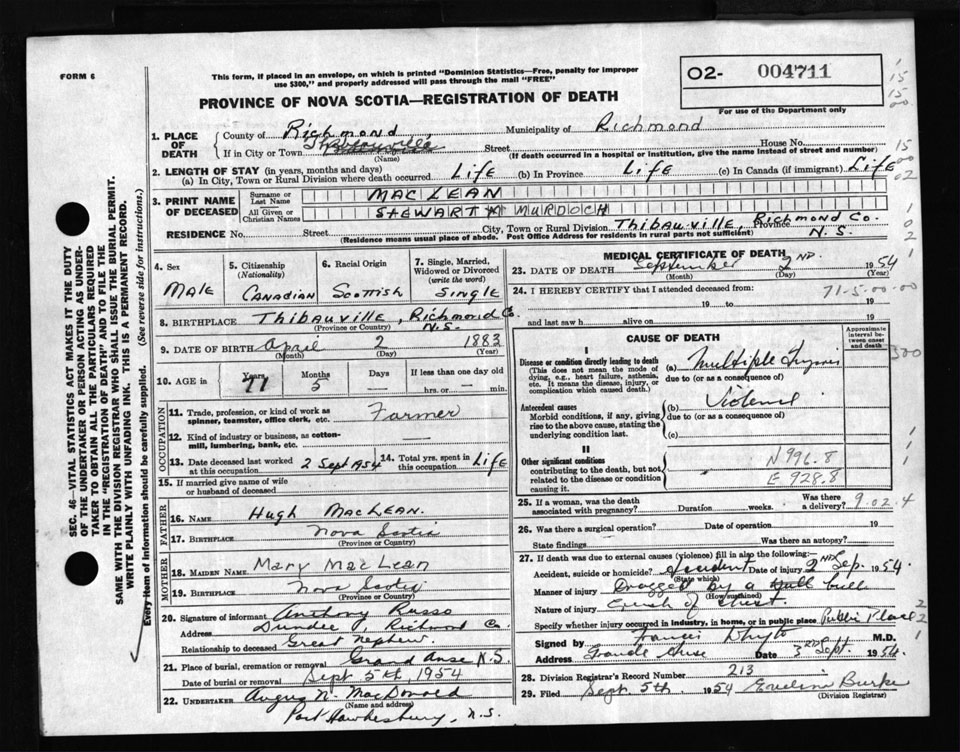 FORM 6
This form, if placed in an envelope, on which is printed "Dominion Statistics—Free, penalty for improper
use $300," and properly addressed will pass through the mail "FREE"
O2- 004711
For use of the Department only
PROVINCE OF NOVA SCOTIA—REGISTRATION OF DEATH
SEC. 46—VITAL STATISTICS ACT MAKES IT THE DUTY
OF THE UNDERTAKER OR PERSON ACTING AS UNDER-
TAKER TO OBTAIN ALL THE PARTICULARS REQUIRED
IN THE "REGISTRATION OF DEATH" AND TO FILE THE
SAME WITH THE DIVISION REGISTRAR WHO SHALL ISSUE THE BURIAL PERMIT.
WRITE PLAINLY WITH UNFADING INK. THIS IS A PERMANENT RECORD.
Every item of information should be carefully supplied. (See reverse side for instructions.)
1. PLACE OF DEATH
County of Richmond Municipality of Richmond
If in City or Town Thibauville Street House No.
(Name) (If death occurred in a hospital or institution, give the name instead of street and number)
2. LENGTH OF STAY (in years, months and days)
(a) In City, Town or Rural Division where death occurred. Life (b) In Province Life (c) In Canada (if immigrant) Life
3. PRINT NAME OF DECEASED
Surname or Last Name MACLEAN
All Given or Christian Names STEWART MURDOCH
RESIDENCE No. Street City, Town or Rural Division Thibauville, Province Richmond Co. N.S.
(Residence means usual place of abode. Post Office Address for residents in rural parts not sufficient)
4. Sex
Male
5. Citizenship (Nationality)
Canadian
6. Racial Origin
Scottish
7. Single, Married, Widowed or Divorced (write the word)
Single
8. BIRTHPLACE Thibauville, Richmond Co. N.S.
(Province or Country)
9. DATE OF BIRTH April 2 1883
(Month) (Day) (Year)
10. AGE in Years 71 Months 5 Days —
If less than one day old
hrs. or — min.
OCCUPATION
11. Trade, profession, or kind of work as
spinner, teamster, office clerk, etc. Farmer
12. Kind of industry or business, as cotton-
mill, lumbering, bank, etc. —
13. Date deceased last worked
at this occupation 2 Sept 1954
14. Total yrs. spent in
this occupation Life
15. If married give name of wife
or husband of deceased
FATHER
16. NAME Hugh MacLean.
17. BIRTHPLACE Nova Scotia
(Province or Country)
MOTHER
18. MAIDEN NAME Mary MacLean
19. BIRTHPLACE Nova Scotia
(Province or Country)
20. Signature of informant Anthony Russo
Address Dundee Richmond Co.
Relationship to deceased Great Nephew.
21. Place of burial, cremation or removal Grand Anse N.S.
Date of burial or removal Sept 5th, 1954
22. UNDERTAKER Angus N. MacDonald
(Name and address)
Port Hawkesbury, N.S.
MEDICAL CERTIFICATE OF DEATH
23. DATE OF DEATH September 2ND 1954
(Month) (Day) (Year)
24. I HEREBY CERTIFY that I attended deceased from:
71-5-00-00
19 to 19
and last saw h alive on 19
CAUSE OF DEATH
Approximate interval between onset and death
I
Disease or condition directly leading to death
(This does not mean the mode of
dying, e.g., heart failure, asthenia,
etc. It means the disease, injury, or
complication which caused death.)
(a) Multiple Injuries
due to (or as a consequence of)
Antecedent causes
Morbid conditions, if any, giving
rise to the above cause, stating the
underlying condition last.
(b) Violence
due to (or as a consequence of)
(c)
II
Other significant conditions
contributing to the death, but not
related to the disease or condition
causing it.
N 996.8
E 928.8
25. If a woman, was the death
associated with pregnancy? Duration weeks. Was there a delivery? 9.02.4
26. Was there a surgical operation? Date of operation 19
State findings Was there an autopsy?
27. If death was due to external causes (violence) fill in also the following:
Accident, suicide or homicide? Accident Date of injury 2nd Sep. 1954.
(State which)
Manner of injury Dragged by a bull
(How sustained)
Nature of injury Crush of chest.
Specify whether injury occurred in industry, in home, or in public place Public Place
Signed by Francis Whyte M.D.
Address Grande Anse Date 3rd Sept. 1954.
28. Division Registrar's Record Number 213
29. Filed Sept. 5th 1954 Eveline Burke
(Division Registrar)